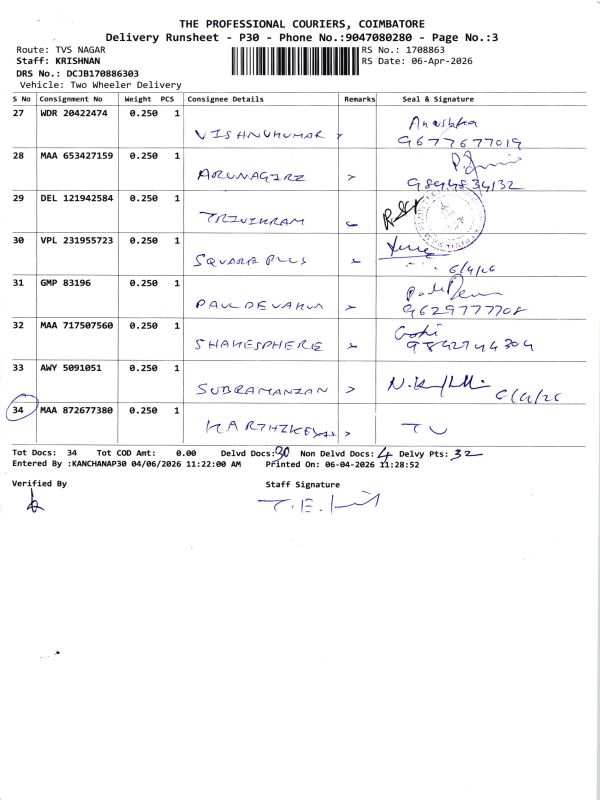 THE PROFESSIONAL COURIERS, COIMBATORE
Delivery Runsheet - P30 - Phone No.:9047080280 - Page No.:3
Route: TVS NAGAR RS No.: 1708863
Staff: KRISHNAN RS Date: 06-Apr-2026
DRS No.: DCJB170886303
Vehicle: Two Wheeler Delivery
S No Consignment No Weight PCS Consignee Details Remarks Seal & Signature
27 WDR 20422474 0.250 1
VISHNUKUMAR
9677677019
28 MAA 653427159 0.250 1
ARUNAGIRI
9894834132
29 DEL 121942584 0.250 1
TRIVIKRAM
30 VPL 231955723 0.250 1
SQUARE PLUS
6/4/26
31 GMP 83196 0.250 1
9629777708
32 MAA 717507560 0.250 1
SHAMESPHERE
9842744304
33 AWY 5091051 0.250 1
SUBRAMANIAN
6/4/26
34 MAA 872677380 0.250 1
Tot Docs: 34 Tot COD Amt: 0.00 Delvd Docs:30 Non Delvd Docs: 4 Delvy Pts: 32
Entered By :KANCHANAP30 04/06/2026 11:22:00 AM Printed On: 06-04-2026 11:28:52
Verified By Staff Signature